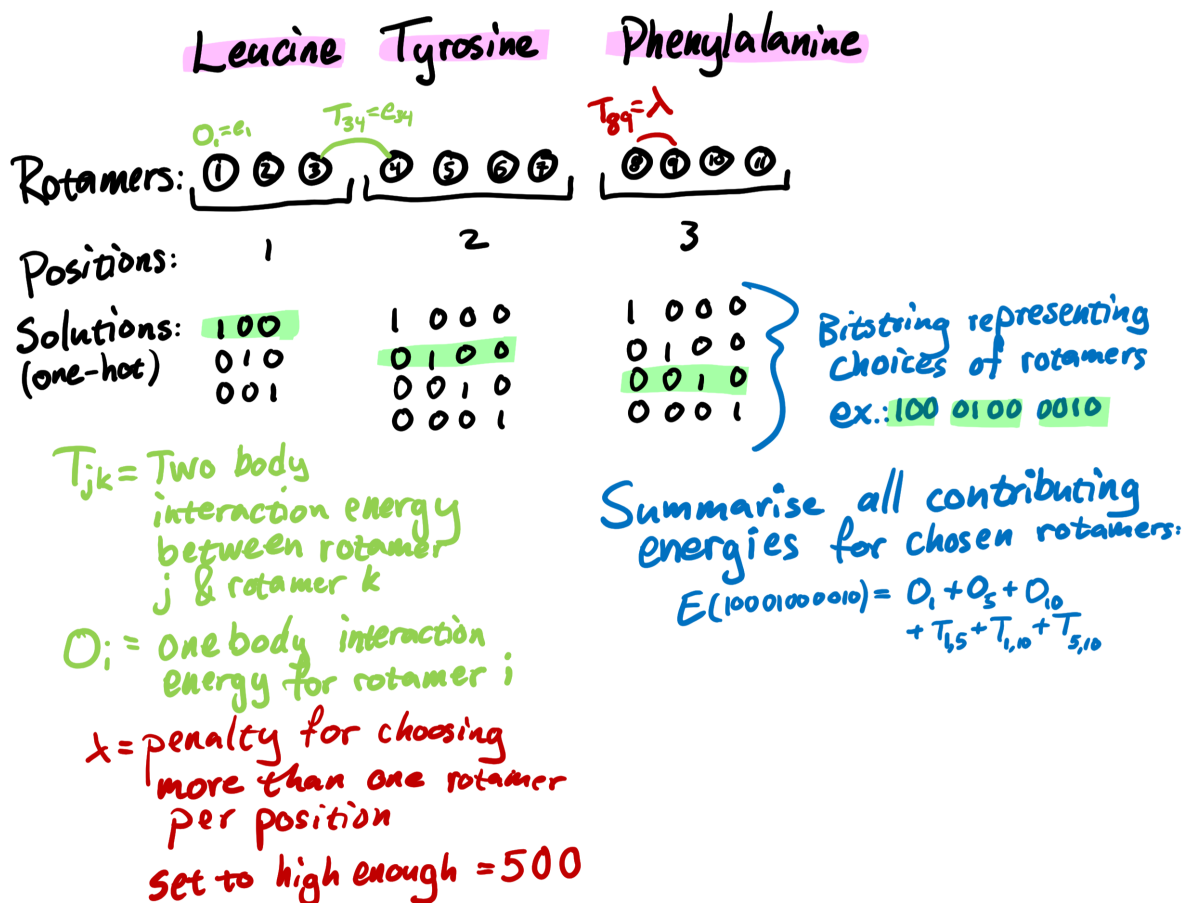 Leucine Tyrosine Phenylalanine
O₁=e₁ T₃₄=e₃₄ T₈₉=λ
Rotamers: 1 2 3 4 5 6 7 8 9 10 11
Positions: 1 2 3
Solutions: 1 0 0 1 0 0 0 1 0 0 0
(one-hot) 0 1 0 0 1 0 0 0 1 0 0
0 0 1 0 0 1 0 0 0 1 0
0 0 0 1 0 0 0 1
Bitstring representing
choices of rotamers
ex.: 100 0100 0010
Tjk = Two body
interaction energy
between rotamer
j & rotamer k
Oi = one body interaction
energy for rotamer i
λ = penalty for choosing
more than one rotamer
per position
set to high enough = 500
Summarise all contributing
energies for chosen rotamers:
E(10001000010) = O₁ + O₅ + O₁₀
+ T₁,₅ + T₁,₁₀ + T₅,₁₀